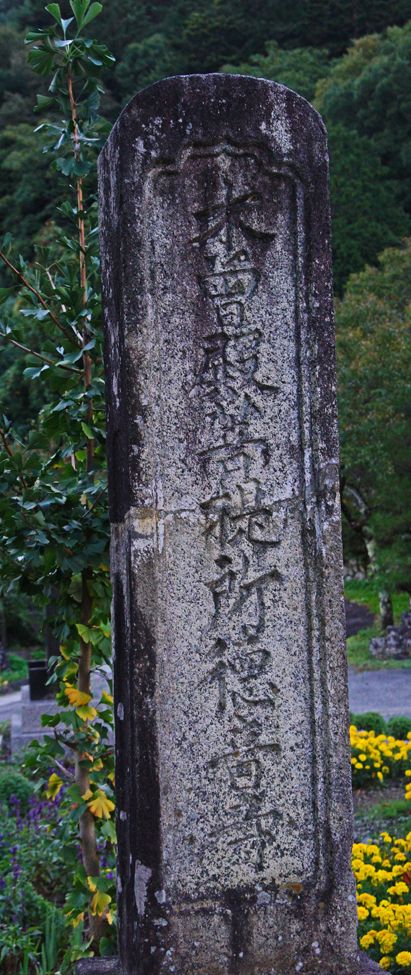 木曽殿菩提所徳音寺